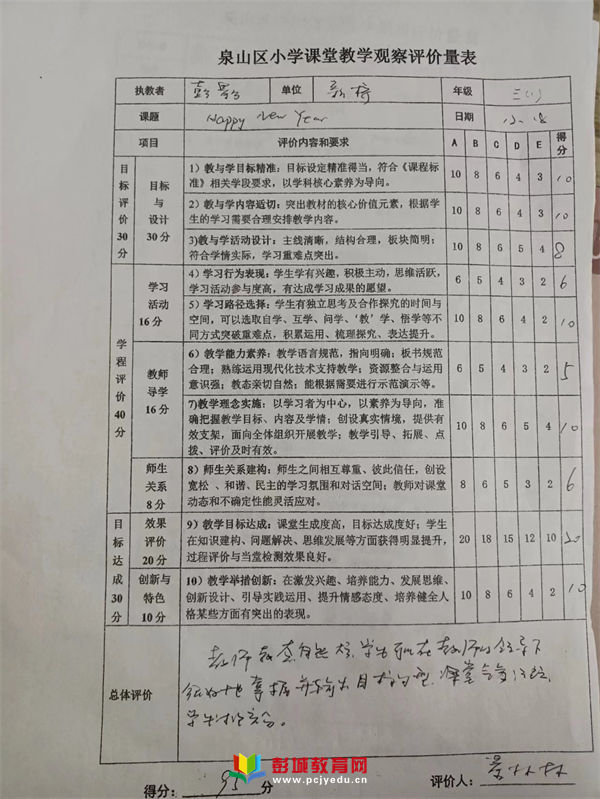 泉山区小学课堂教学观察评价量表
执教者 单位 年级 三(1)
课题 Happy New Year 日期
项目 评价内容和要求 A B C D E 得分
目标评价30分 目标与设计30分
1）教与学目标精准：目标设定精准得当，符合《课程
标准》相关学段要求，以学科核心素养为导向。 10 8 6 4 3 10
2）教与学内容适切：突出教材的核心价值元素，根据学
生的学习需要合理安排教学内容。 10 8 6 4 3 10
3)教与学活动设计：主线清晰，结构合理，板块简明；
符合学情实际，学习重难点突出。 10 8 6 5 4 8
学程评价40分 学习活动16分
4）学习行为表现：学生学有兴趣，积极主动，思维活跃，
学习活动参与度高，有达成学习成果的愿望。 6 5 4 3 2 6
5）学习路径选择：学生有独立思考及合作探究的时间与
空间，可以选取自学、互学、问学、‘教’学、悟学等不
同方式突破重难点，积累运用、梳理探究、表达提升。 10 8 6 4 2 10
教师导学16分
6）教学能力素养：教学语言规范，指向明确；板书规范
合理；熟练运用现代化技术支持教学；资源整合与运用
意识强；教态亲切自然；能根据需要进行示范演示等。 6 5 4 3 2 5
7)教学理念实施：以学习者为中心，以素养为导向，准
确把握教学目标、内容及学情；创设真实情境，提供有
效支架，面向全体组织开展教学；教学引导、拓展、点
拨、评价及时有效。 10 8 6 5 4 10
师生关系8分
8）师生关系建构：师生之间相互尊重、彼此信任，创设
宽松 、和谐、民主的学习氛围和对话空间；教师对课堂
动态和不确定性能灵活应对。 8 6 5 3 2 6
目标达成30分 效果评价20分
9）教学目标达成：课堂生成度高，目标达成度好；学生
在知识建构、问题解决、思维发展等方面获得明显提升，
过程评价与当堂检测效果良好。 20 18 15 12 10 20
创新与特色10分
10）教学举措创新：在激发兴趣、培养能力、发展思维、
创新设计、引导实践运用、提升情感态度、培养健全人
格某些方面有突出的表现。 10 8 6 4 2 10
总体评价
得分： 95 分 评价人：
彭城教育网
www.pcjyedu.cn